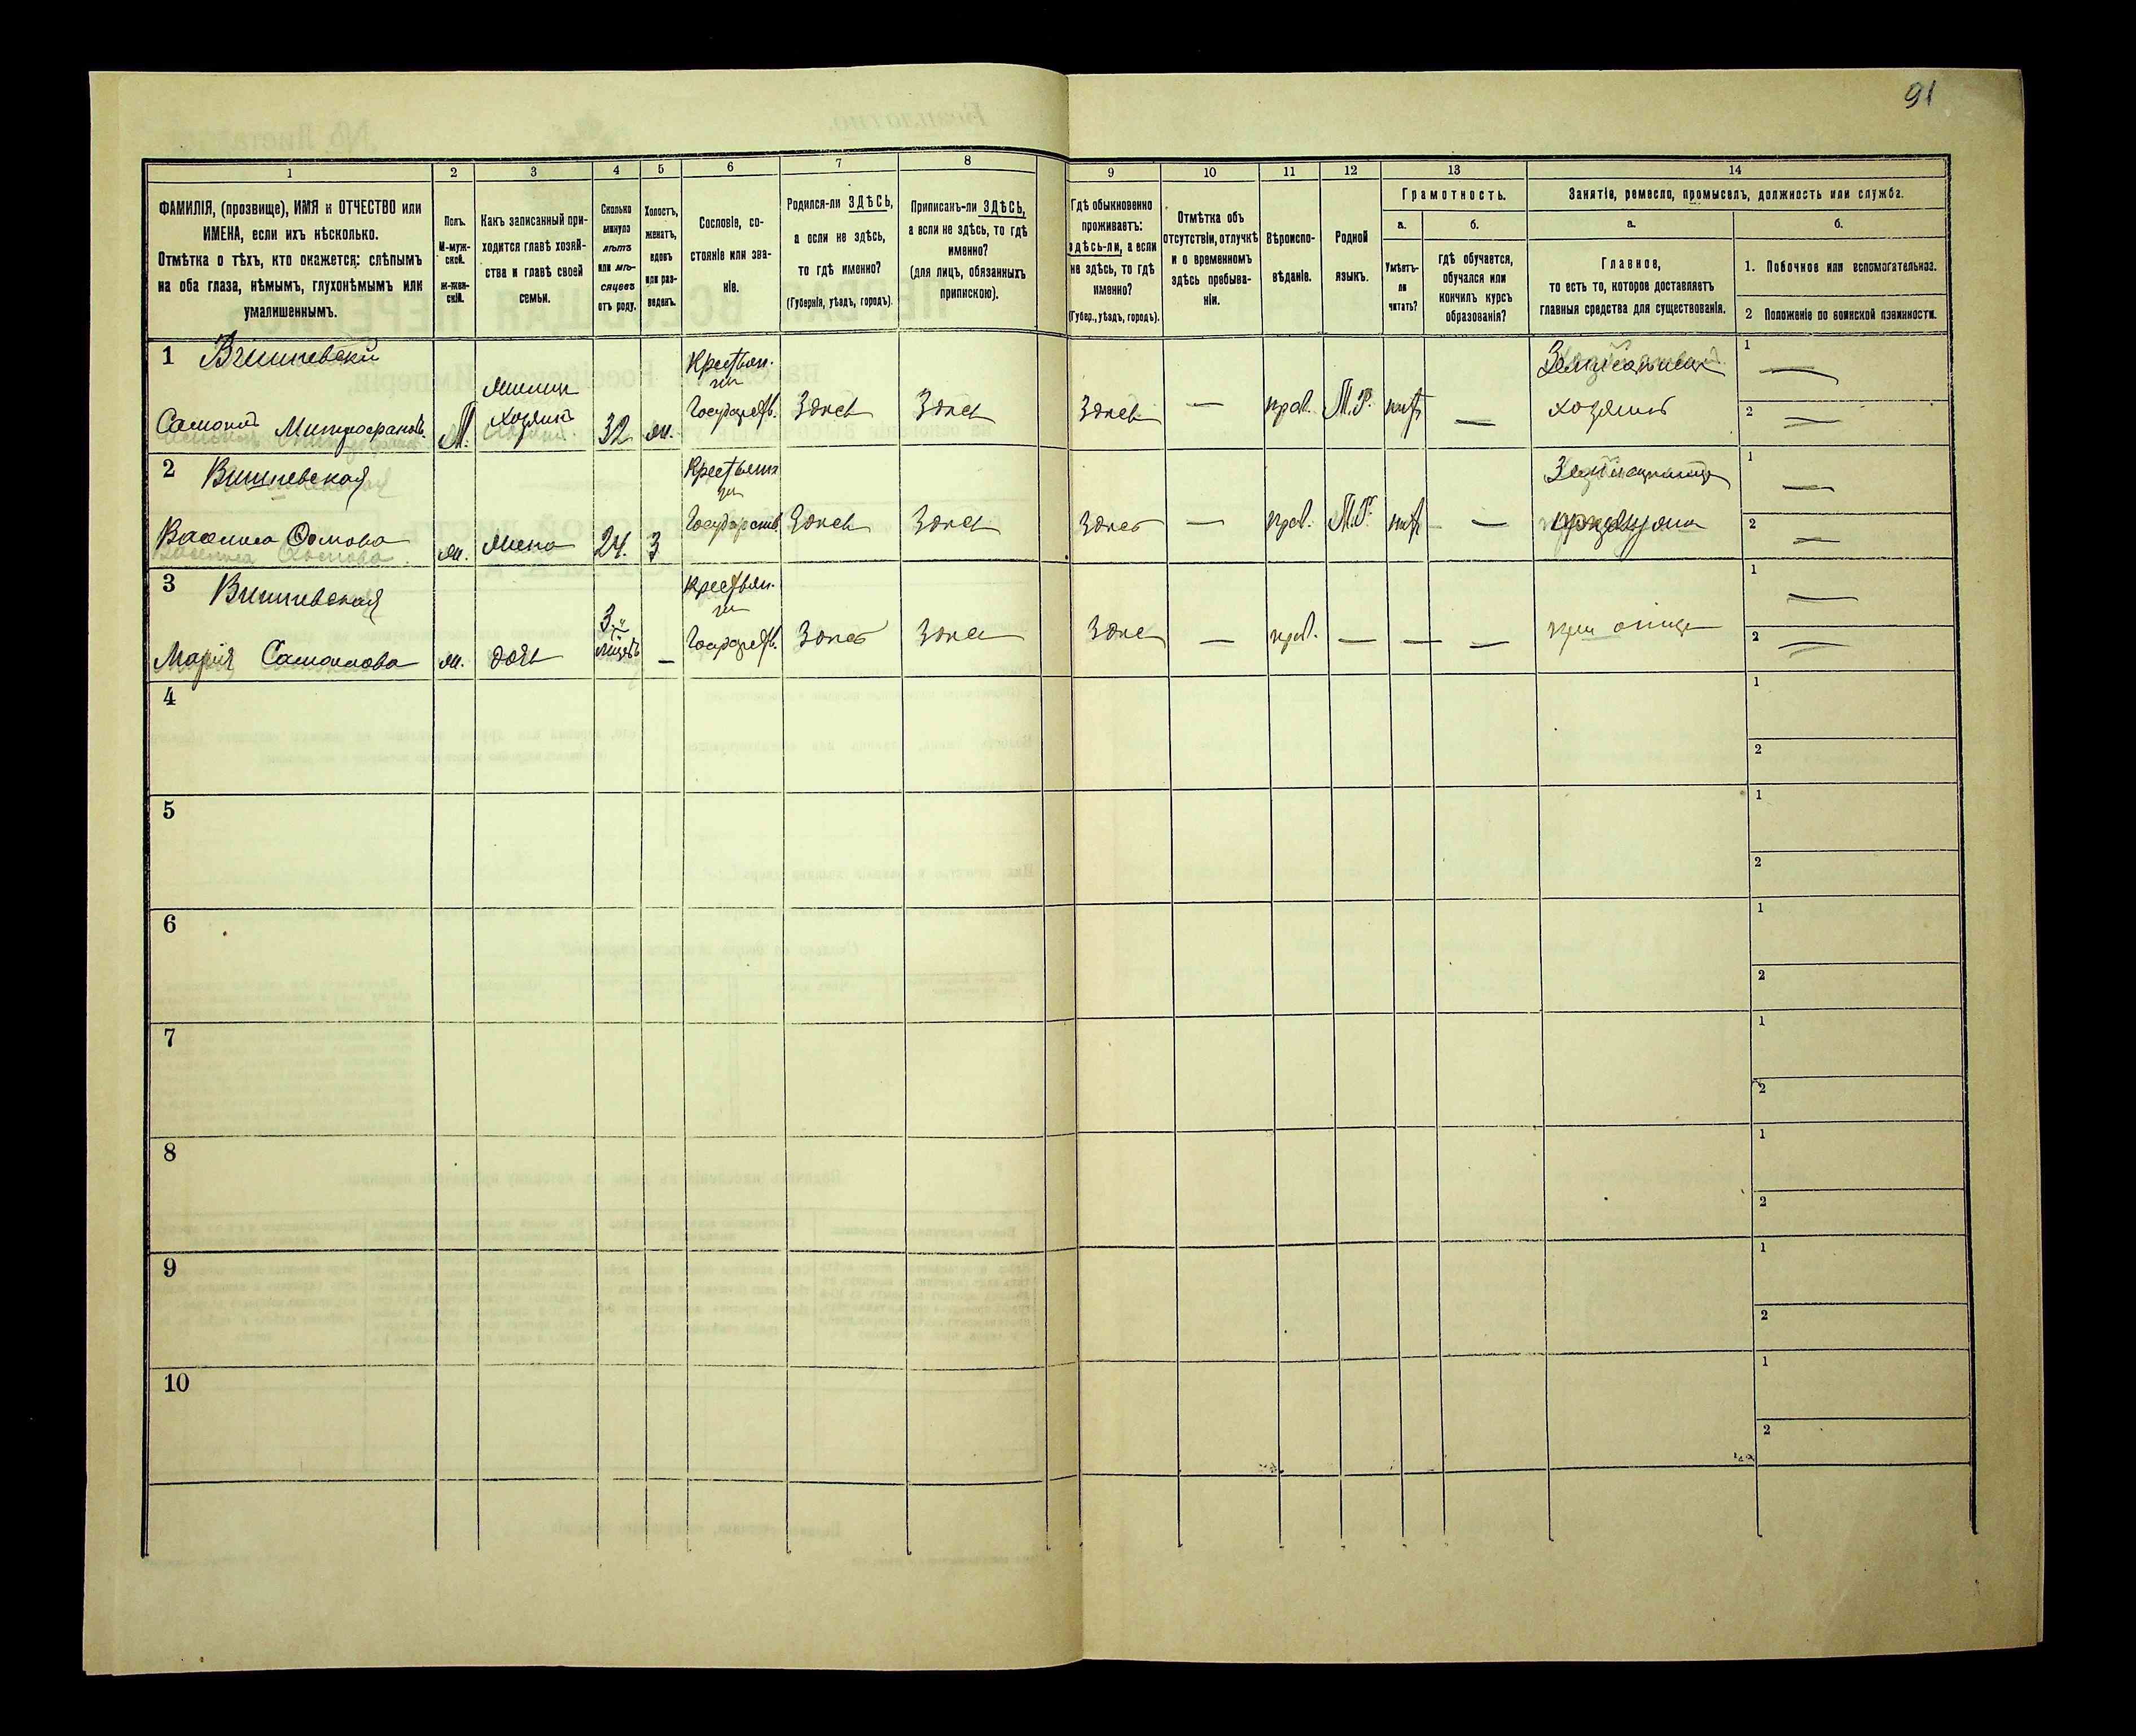 91
1
2
3
4
5
6
7
8
9
10
11
12
13
14
ФАМИЛІЯ, (прозвище), ИМЯ и ОТЧЕСТВО или
ИМЕНА, если ихъ нѣсколько.
Отмѣтка о тѣхъ, кто окажется: слѣпымъ
на оба глаза, нѣмымъ, глухонѣмымъ или
умалишеннымъ.
Полъ.
М-муж-
ской.
ж-жен-
скій.
Какъ записанный при-
ходится главѣ хозяй-
ства и главѣ своей
семьи.
Сколько
минуло
лѣтъ
или мѣ-
сяцевъ
отъ роду.
Холостъ,
женатъ,
вдовъ
или раз-
веденъ.
Сословіе, со-
стояніе или зва-
ніе.
Родился-ли ЗДѢСЬ,
а если не здѣсь,
то гдѣ именно?
(Губернія, уѣздъ, городъ).
Приписанъ-ли ЗДѢСЬ,
а если не здѣсь, то гдѣ
именно?
(для лицъ, обязанныхъ
припискою).
Гдѣ обыкновенно
проживаетъ:
здѣсь-ли, а если
не здѣсь, то гдѣ
именно?
(Губер., уѣздъ, городъ).
Отмѣтка объ
отсутствіи, отлучкѣ
и о временномъ
здѣсь пребыва-
ніи.
Вѣроиспо-
вѣданіе.
Родной
языкъ.
Грамотность.
а.
Умѣетъ-
ли
читать?
б.
гдѣ обучается,
обучался или
кончилъ курсъ
образованія?
Занятіе, ремесло, промыселъ, должность или служба.
а.
Главное,
то есть то, которое доставляетъ
главныя средства для существованія.
б.
1. Побочное или вспомогательное.
2 Положеніе по воинской повинности.
1 Вишневскій
Митрофановъ
М.
хозяинъ
32
ж.
Крестьян.
Государств.
Здѣсь
Здѣсь
Здѣсь
—
прав.
М.Р.
нѣт
—
хозяинъ
1 —
2 —
2 Вишневская
Василиса Фомова
ж.
жена
24.
З
Крестьян
Государств
Здѣсь
Здѣсь
Здѣсь
—
прав.
М.Р.
нѣт
—
1 —
2 —
3 Вишневская
Марія
ж.
дочь
3
—
Крестьян.
Государств.
Здѣсь
Здѣсь
Здѣсь
—
прав.
—
—
—
при отцѣ
1 —
2 —
4
1
2
5
1
2
6
1
2
7
1
2
8
1
2
9
1
2
10
1
2